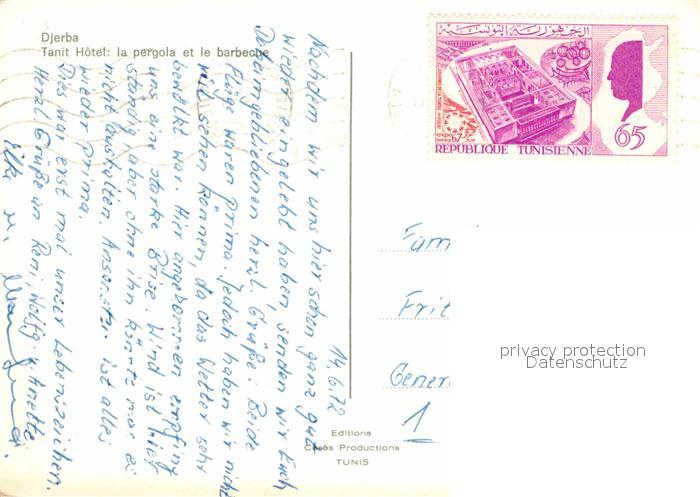 Djerba
Tanit Hôtel: la pergola et le barbecue
الجمهورية التونسية
EXPO 67
65
REPUBLIQUE TUNISIENNE
14.6.72
Nachdem wir uns hier schon ganz gut
wieder eingelebt haben, senden wir Euch
Daheimgebliebenen herzl. Grüße. Beide
Flüge waren prima. Jedoch haben wir nicht
viel sehen können, da das Wetter sehr
bewölkt war. Hier angekommen empfing
uns eine starke Brise. Wind ist hier
ständig, aber ohne ihn könnte man es
nicht aushalten. Ansonsten ist alles
wieder prima.
Dies mal erst mal unser Lebenszeichen.
Herzl. Grüße an Reni, Wolfg. u. Anette
Elke u.
Fam
Frit
Gener
1
privacy protection
Datenschutz
Editions
Cérès Productions
TUNIS